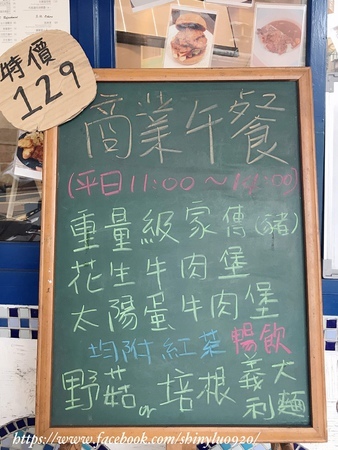 特價
129
商業午餐
(平日11:00～14:00)
重量級家傳(豬)
花生牛肉堡
太陽蛋牛肉堡
均附紅茶暢飲
野菇or培根義大利麵
https://www.facebook.com/shinyluo920/